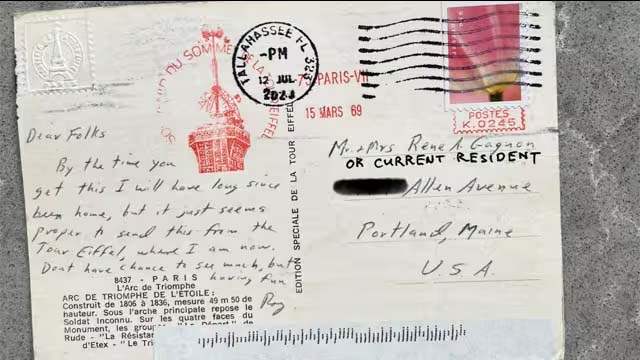 DU SOMMET DE LA TOUR EIFFEL
TALLAHASSEE FL 323
-PM
12 JUL
2023
75 PARIS-VII
15 MARS 69
POSTES
K.0245
Dear Folks
By the time you
get this I will have long since
been home, but it just seems
proper to send this from the
Tour Eiffel, where I am now.
Dont have chance to see much, but
having fun
Roy
8437 - PARIS
L'Arc de Triomphe
ARC DE TRIOMPHE DE L'ÉTOILE:
Construit de 1806 à 1836, mesure 49 m 50 de
hauteur. Sous l'arche principale repose le
Soldat Inconnu. Sur les quatre faces du
Monument, les groupes "Le Départ" de
Rude - "La Résistance
d'Etex - "Le
EDITION SPECIALE DE LA TOUR EIFFEL
Mr. & Mrs Rene A Gagnon
OR CURRENT RESIDENT
Allen Avenue
Portland, Maine
U.S.A.